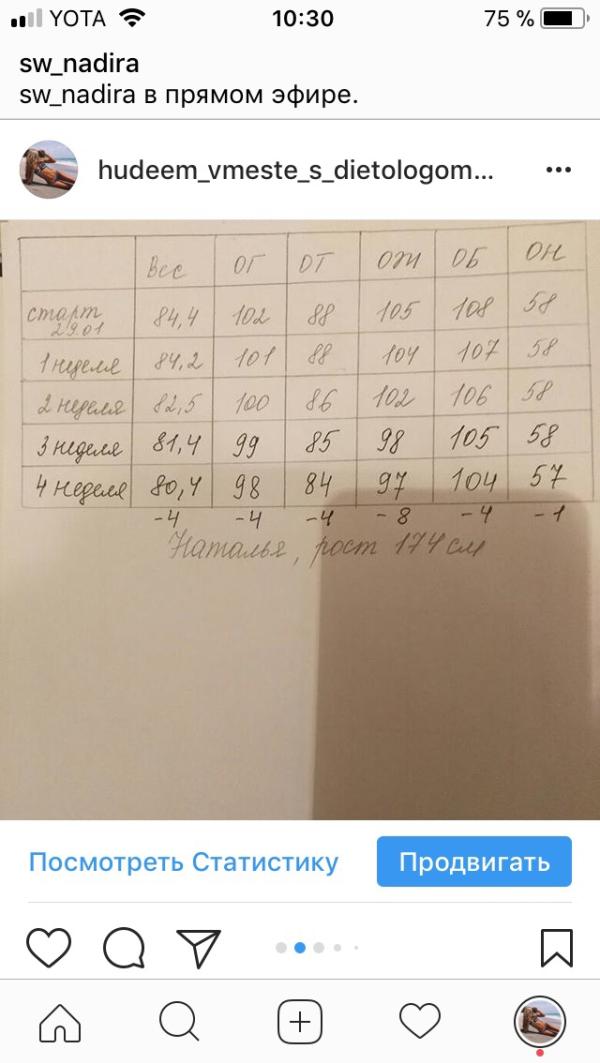 YOTA 10:30 75 %
sw_nadira
sw_nadira в прямом эфире.
hudeem_vmeste_s_dietologom...
Вес ОГ ОТ ОЖ ОБ ОН
старт 29.01 84,4 102 88 105 108 58
1 неделя 84,2 101 88 104 107 58
2 неделя 82,5 100 86 102 106 58
3 неделя 81,4 99 85 98 105 58
4 неделя 80,4 98 84 97 104 57
-4 -4 -4 -8 -4 -1
Наталья, рост 174 см
Посмотреть Статистику Продвигать